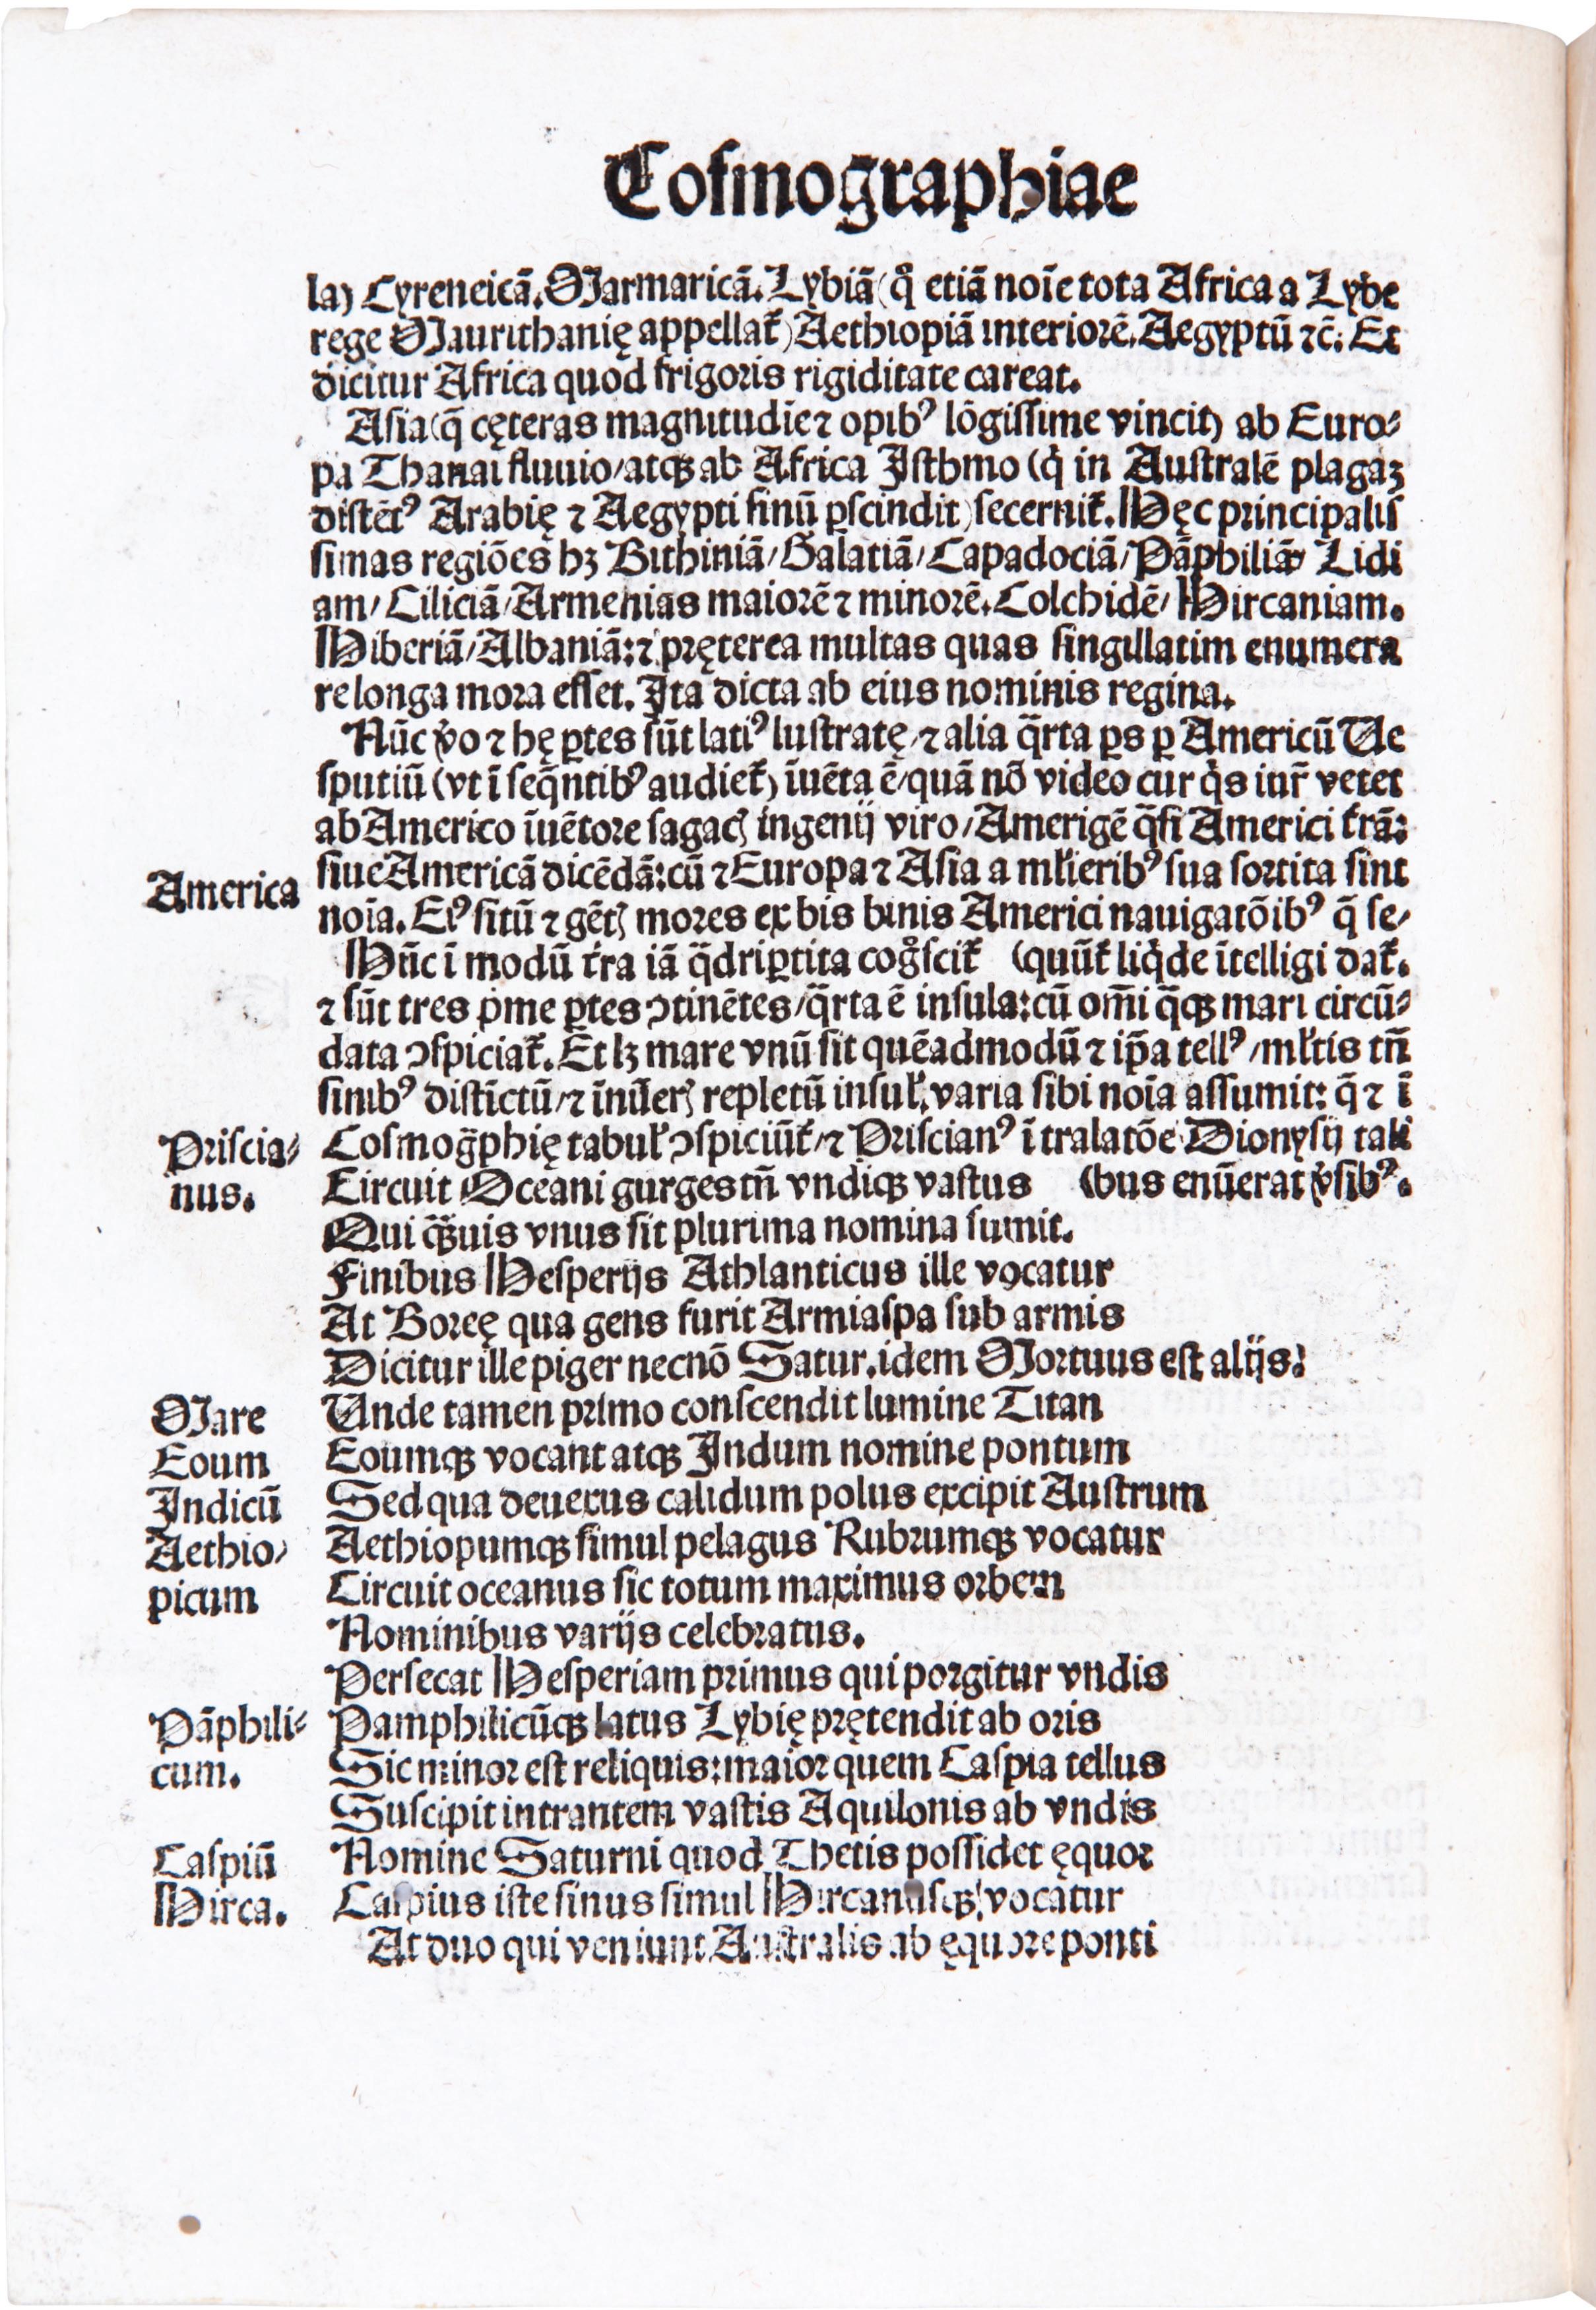 Cosmographiae
la) Cyreneicā. Marmaricā. Lybiā (q̊ etiā noīe tota Africa a Lybe
rege Maurithanię appellať) Aethiopiā interiorē. Aegyptū ⁊c̄. Et
dicitur Africa quod frigoris rigiditate careat.
Asia (q̄ cęteras magnitudīe ⁊ opibꝰ lōgissime vincit) ab Euro⸗
pa Thanai fluuio/atqꝫ ab Africa Isthmo (q̇ in Australē plagaꝫ
distētꝰ Arabię ⁊ Aegypti sinū ꝑscindit) secerniť. Hęc principalis
simas regiōes hꝫ Bithiniā/Galatiā/Capadociā/Pāphiliā Lidi
am/Ciliciā/Armenias maiorē ⁊ minorē. Colchidē/Hircaniam.
Hiberiā/Albaniā: ⁊ pręterea multas quas singillatim enumera
re longa mora esset. Ita dicta ab eius nominis regina.
Nūc v̊o ⁊ hę ꝑtes sūt latiꝰ lustratę/⁊ alia q̄rta ꝑs ꝑ Americū Ve
sputiū (vt ī seq̄ntibꝰ audieť) īuēta ē/quā nō video cur q̇s iur̄ vetet
ab Americo īuētore sagacꝭ ingenij viro/Amerigē q̄si Americi t́rā:
America
siue Americā dicēdā: cū ⁊ Europa ⁊ Asia a mľieribꝰ sua sortita sint
noīa. Eiꝰ sitū ⁊ gētꝭ mores ex bis binis Americi nauigatōibꝰ q̄ se/
Hūc ī modū t́ra iā q̄driꝑtita cog̊sciť (quūť liq̇de ītelligi dať.
⁊ sūt tres pⁱme ꝑtes ↄtinētes/q̄rta ē insula: cū om̄i q̄qꝫ mari circū⸗
data ↄspiciať. Et lꝫ mare vnū sit quēadmodū ⁊ ip̄a tellꝰ/mľtis tn̄
sinibꝰ distīctū/⁊ īnūerꝭ repletū insuľ. varia sibi noīa assumit: q̄ ⁊ ī
Priscia⸗
Cosmog̃phię tabuľ ↄspiciūť/⁊ Priscianꝰ ī tralatōe Dionysij tali
nus.
Circuit Oceani gurges tn̄ vndiqꝫ vastus (bus enūerat v̓sibꝰ.
Qui q̄̄uis vnus sit plurima nomina sumit.
Finibus Hesperijs Athlanticus ille vocatur
At Boreę qua gens furit Armiaspa sub armis
Dicitur ille piger necnō Satur. idem Mortuus est alijs:
Mare
Vnde tamen primo conscendit lumine Titan
Eoum
Eoumqꝫ vocant atqꝫ Indum nomine pontum
Indicū
Sed qua deuexus calidum polus excipit Austrum
Aethio/
Aethiopumqꝫ simul pelagus Rubrumqꝫ vocatur
picum
Circuit oceanus sic totum maximus orbem
Nominibus varijs celebratus.
Persecat Hesperiam primus qui porgitur vndis
Pāphili⸗
Pamphilicūqꝫ latus Lybię prętendit ab oris
cum.
Sic minor est reliquis: maior quem Caspia tellus
Suscipit intrantem vastis Aquilonis ab vndis
Caspiū
Nomine Saturni quod Thetis possidet ęquor
Hirca.
Caspius iste sinus simul Hircanusqꝫ vocatur
At duo qui veniunt Australis ab ęquore ponti